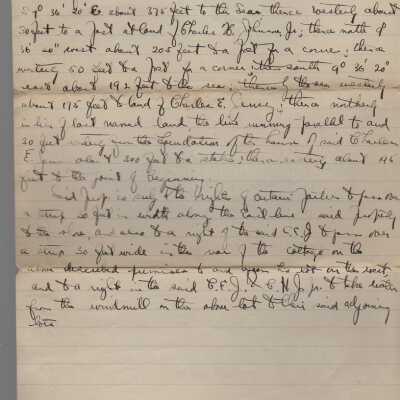 S 9° 36' 20" E about 375 feet to the Sea; thence westerly about
50 feet to a post at land of Charles H. Johnson, Jr; thence north 9°
36' 20" west about 205 feet to a post for a corner; thence
westerly 50 feet to a post for a corner thence south 9° 36' 20"
east about 192 feet to the sea; thence by the sea westerly
about 175 feet to land of Charles E. ; thence northerly
in line of last named land the line running parallel to and
20 feet westerly from the foundation of the house of said Charles
E. about 300 feet to a stake; thence easterly about 146
feet to the point of beginning.
Said prop. is subj. to the rights of certain parties to pass over
a strip 20 feet in width along the said line said property
to the shore, and also to a right of the said C.E.J. to pass over
a strip 30 feet wide in the rear of the cottage on the
above described premises to and upon his lot on the west,
and to a right in the said C.E.J. & C.H.J. jr. to take water
from the windmill on the above lot to their said adjoining
lots